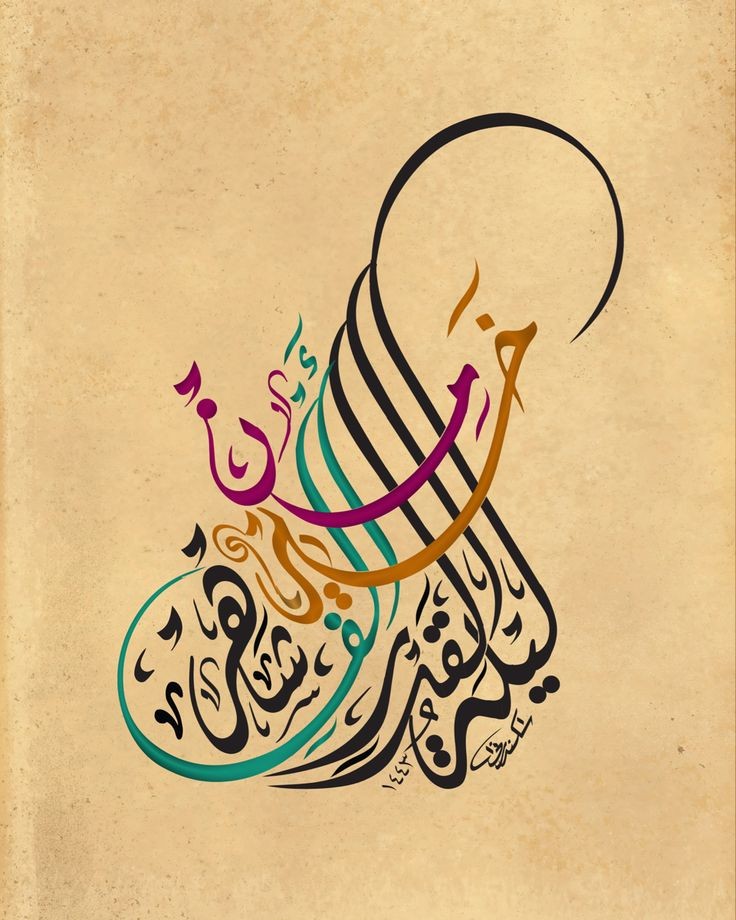 ليلة القدر
خير
من
ألف
شهر
١٤٤٣